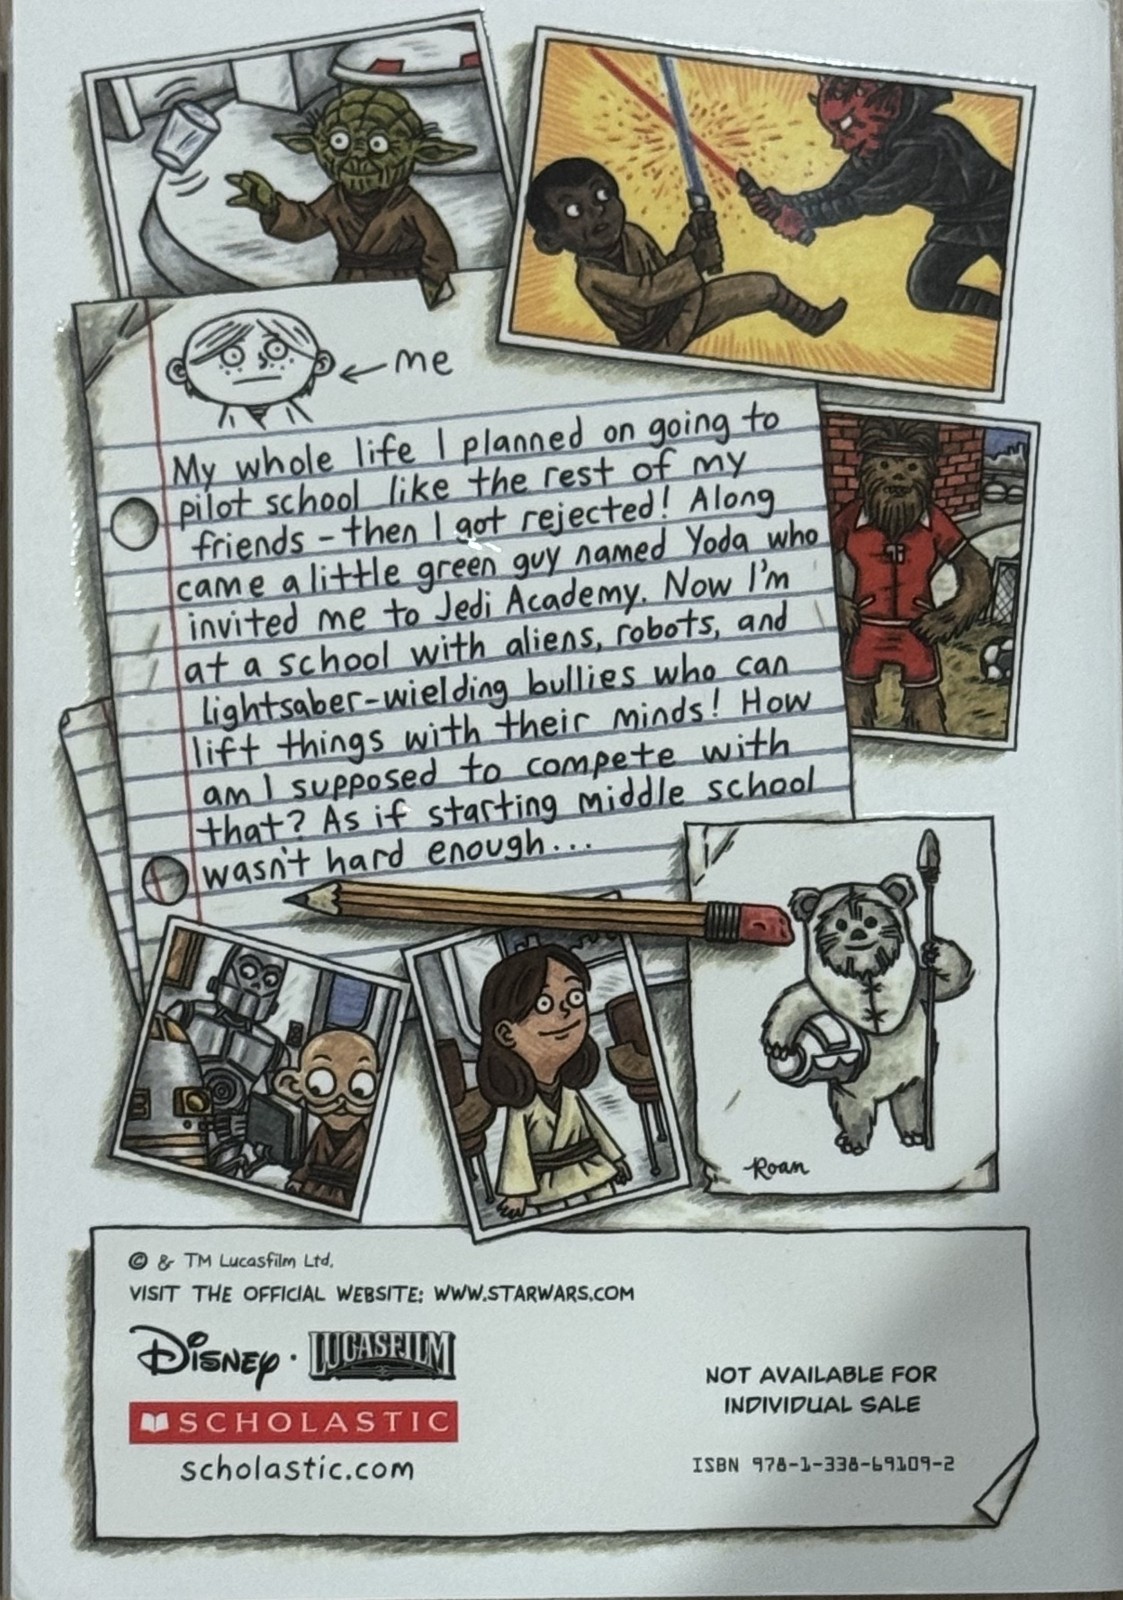 me
My whole life I planned on going to
pilot school like the rest of my
friends - then I got rejected! Along
came a little green guy named Yoda who
invited me to Jedi Academy. Now I'm
at a school with aliens, robots, and
lightsaber-wielding bullies who can
lift things with their minds! How
am I supposed to compete with
that? As if starting middle school
wasn't hard enough...
Roan
© & TM Lucasfilm Ltd.
VISIT THE OFFICIAL WEBSITE: WWW.STARWARS.COM
DISNEY · LUCASFILM
SCHOLASTIC
scholastic.com
NOT AVAILABLE FOR
INDIVIDUAL SALE
ISBN 978-1-338-69109-2